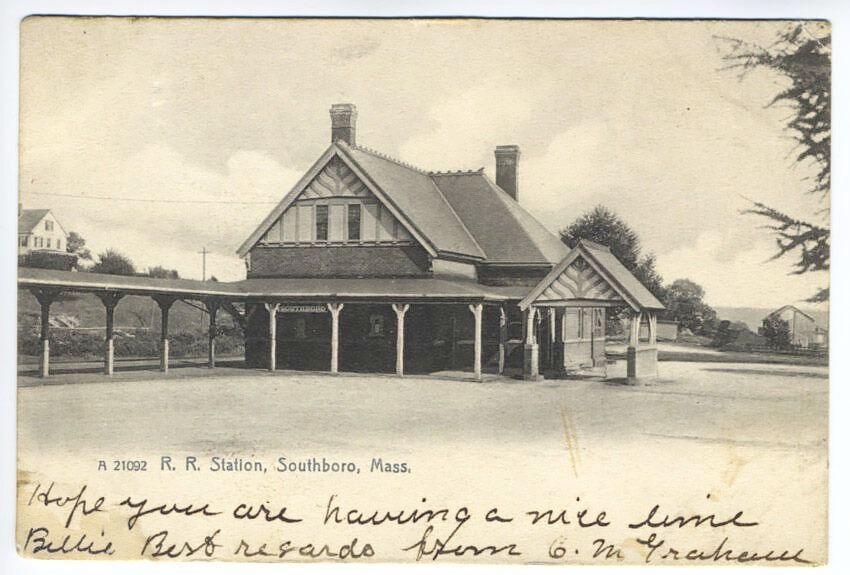 SOUTHBORO
A 21092 R. R. Station, Southboro, Mass.
Hope you are having a nice time
Billie Best regards from C. M Graham